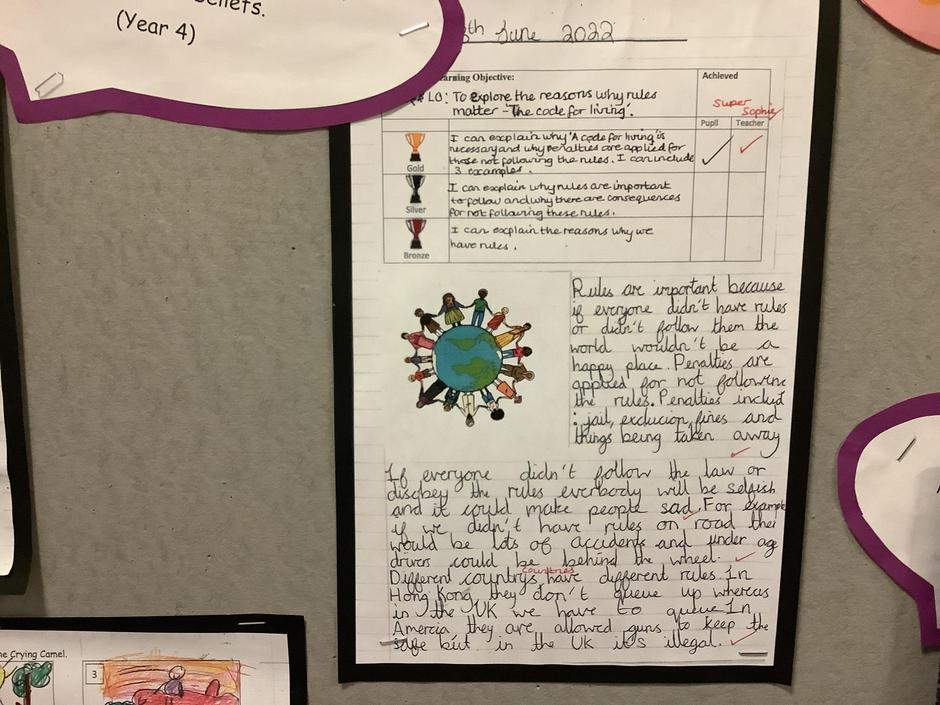 eliefs.
(Year 4)
th June 2022
arning Objective:
Achieved
LO: To explore the reasons why rules
matter - 'The code for living'.
Super
Sophie
Pupil
Teacher
I can explain why 'A code for living' is
necessary and why penalties are applied for
those not following the rules. I can include
3 examples.
Gold
I can explain why rules are important
to follow and why there are consequences
for not following these rules.
Silver
I can explain the reasons why we
have rules.
Bronze
Rules are important because
if everyone didn't have rules
or didn't follow them the
world wouldn't be a
happy place. Penalties are
applied for not following
the rules. Penalties includ
: jail, exclucion, fines and
things being taken away
If everyone didn't follow the law or
disobey the rules everbody will be selfish
and it could make people sad. For example
if we didn't have rules on road ther
would be lots of accidents and under age
drivers could be behind the wheel.
countries
Different countrys have different rules. In
Hong Kong they don't queue up whereas
in the UK we have to queue. In
Amercia they are allowed guns to keep the
safe but in the UK it's illegal.
e Crying Camel.
3